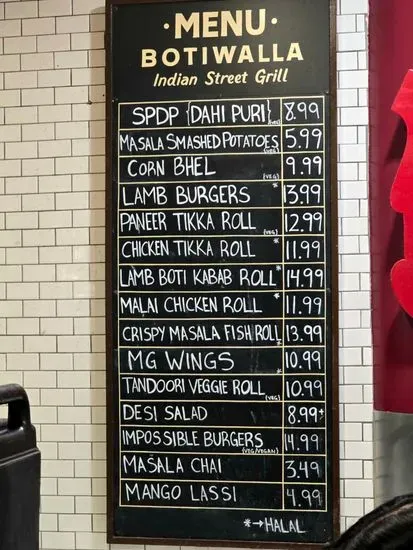 ·MENU·
BOTIWALLA
Indian Street Grill
SPDP {DAHI PURI} (VEG) 8.99
MASALA SMASHED POTATOES (VEG) 5.99
CORN BHEL (VEG) 9.99
LAMB BURGERS * 13.99
PANEER TIKKA ROLL (VEG) 12.99
CHICKEN TIKKA ROLL * 11.99
LAMB BOTI KABAB ROLL * 14.99
MALAI CHICKEN ROLL * 11.99
CRISPY MASALA FISH ROLL 13.99
MG WINGS * 10.99
TANDOORI VEGGIE ROLL (VEG) 10.99
DESI SALAD 8.99+
IMPOSSIBLE BURGERS (VEG/VEGAN) 14.99
MASALA CHAI 3.49
MANGO LASSI 4.99
*→HALAL